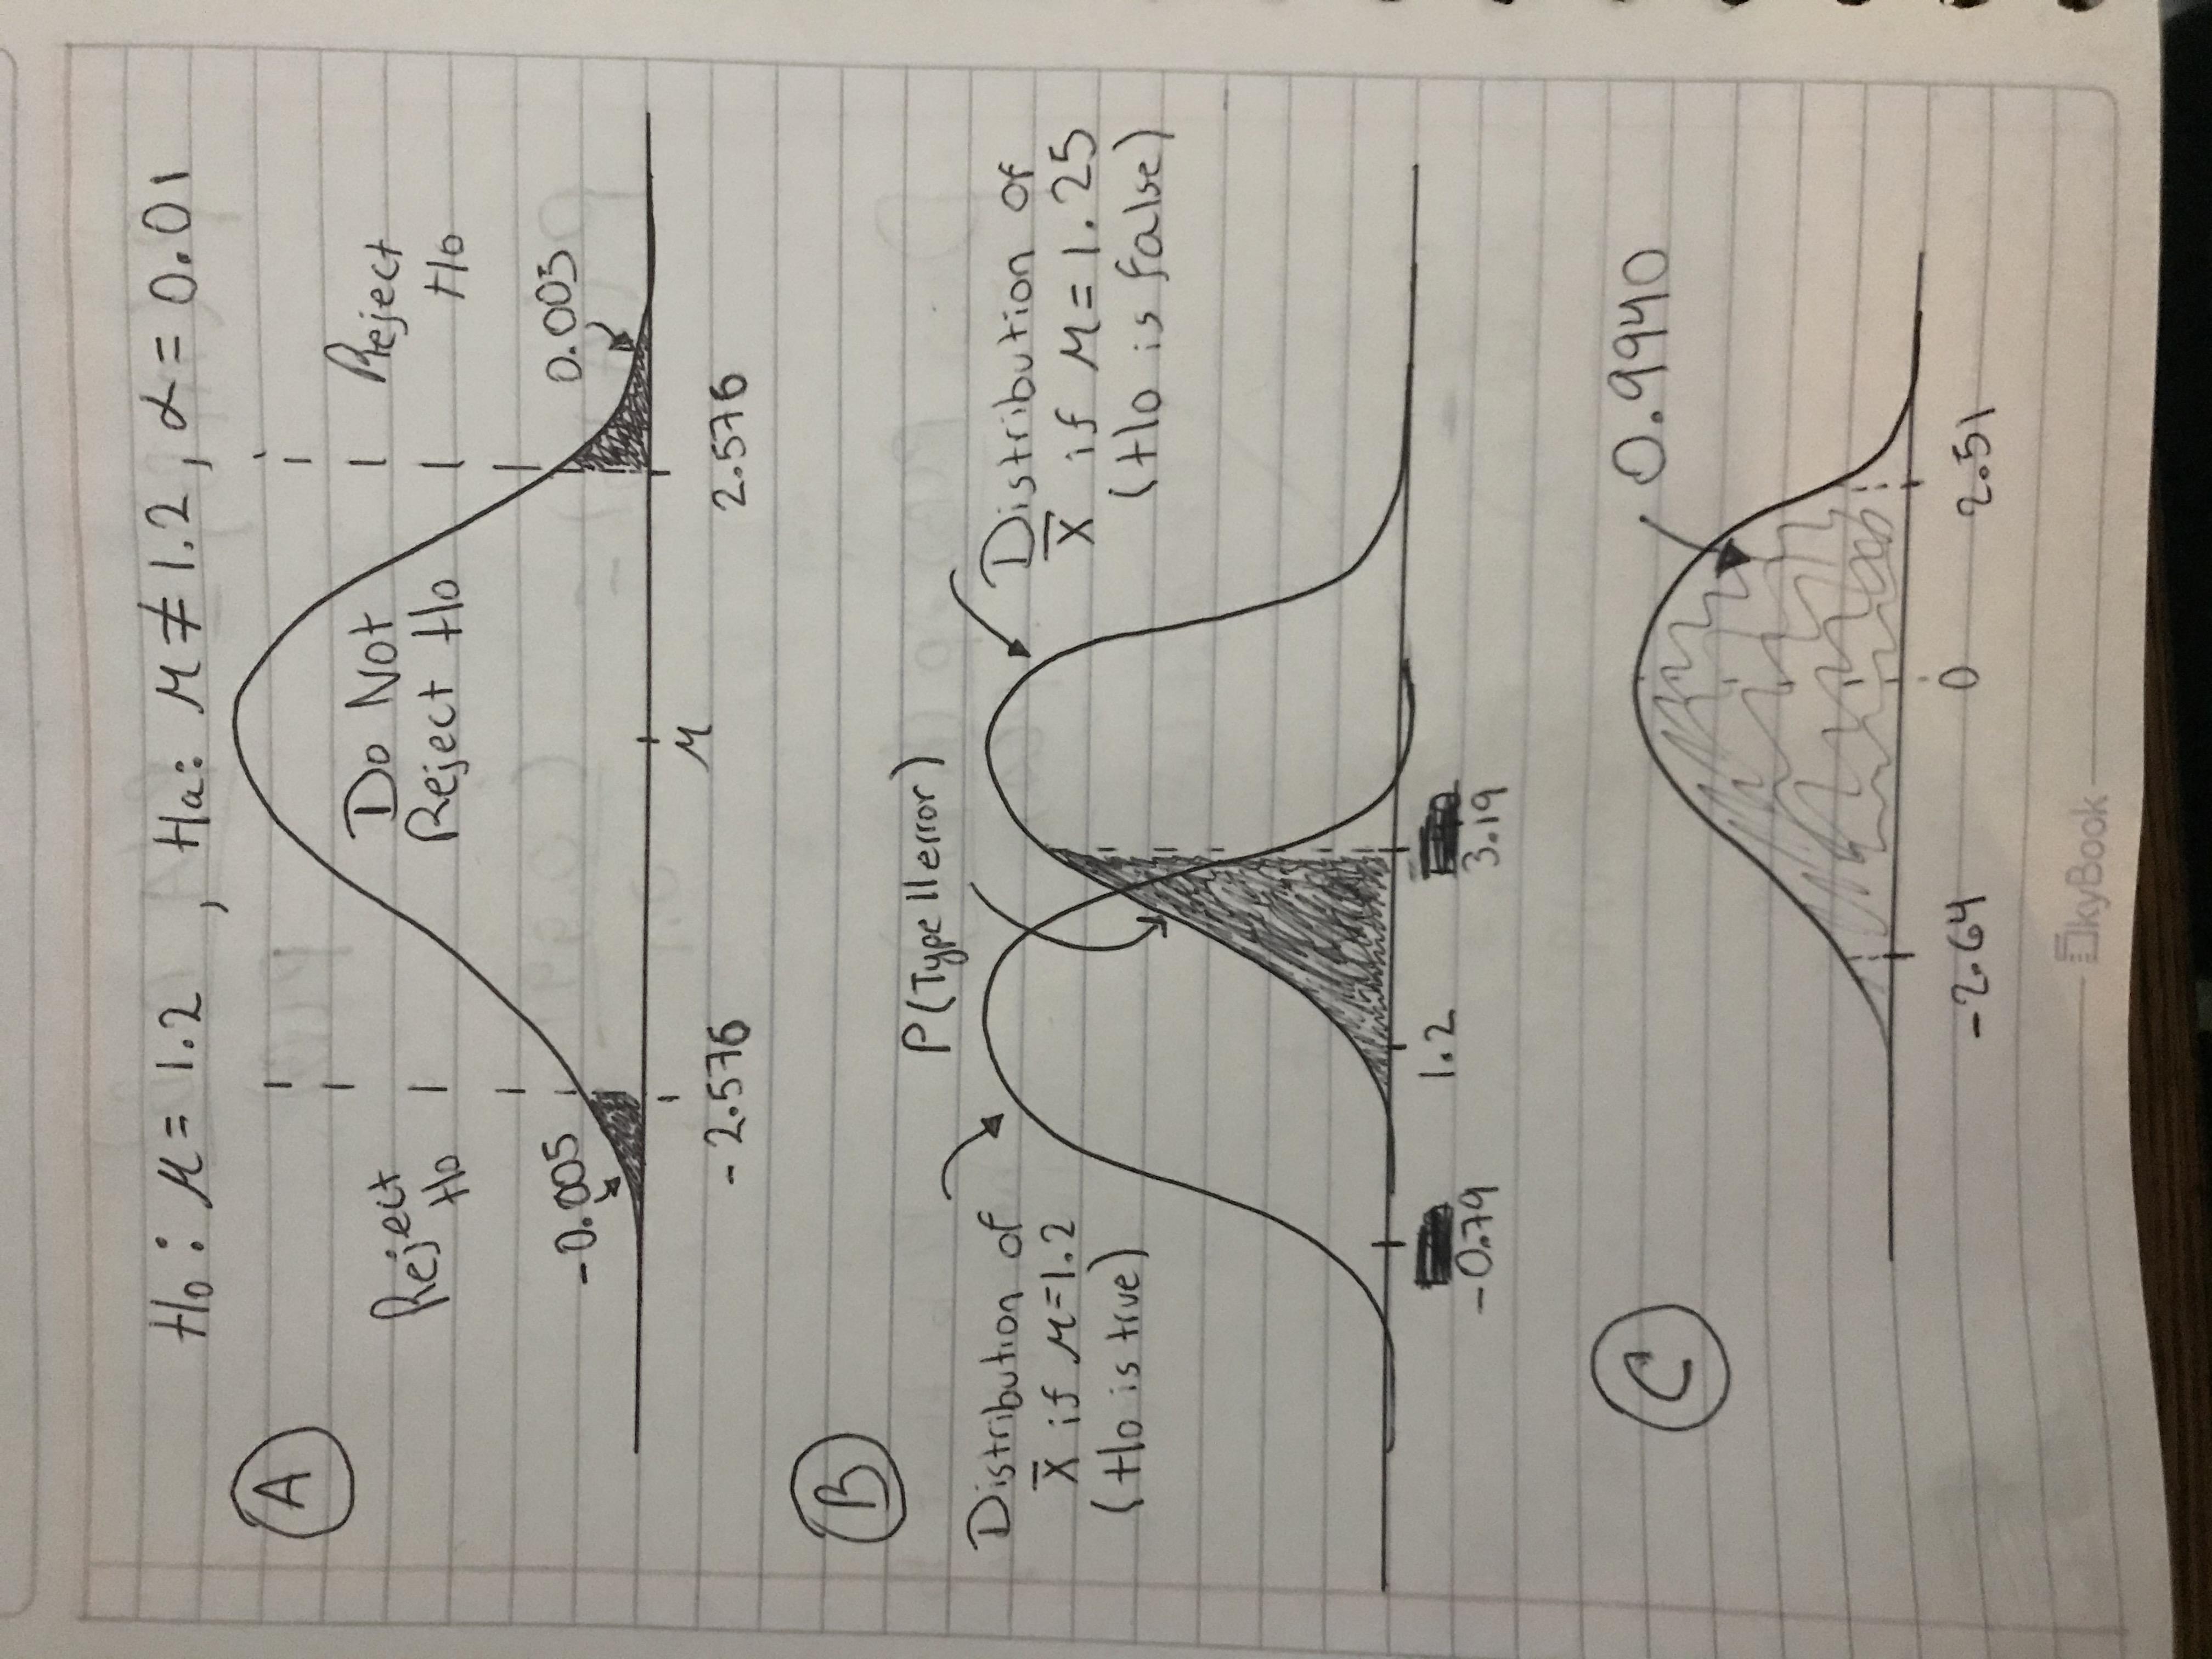 Ho: μ = 1.2 , Ha: μ ≠ 1.2, α = 0.01
A
Reject
Ho
Do Not
Reject Ho
Reject
Ho
-0.005
0.005
-2.576
μ
2.576
B
P(Type II error)
Distribution of
x̄ if μ=1.2
(Ho is true)
Distribution of
x̄ if μ=1.25
(Ho is false)
-0.79
1.2
3.19
C
0.9940
-2.64
0
2.51
SkyBook